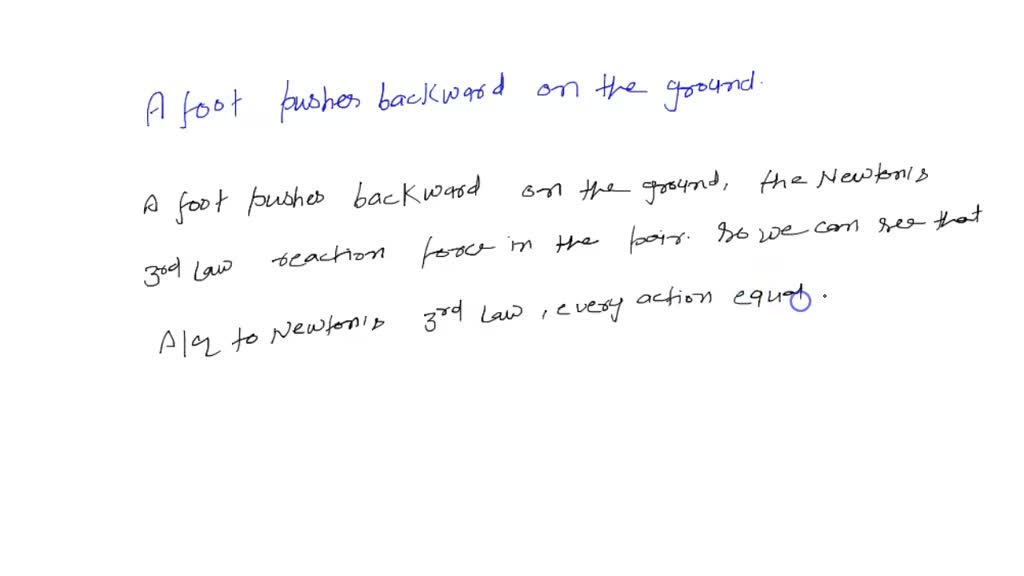 A foot pushes backward on the ground.
A foot pushes backward on the ground, the Newton's
3rd Law reaction force in the pair. So we can see that
A/q to Newton's 3rd Law, every action equal.